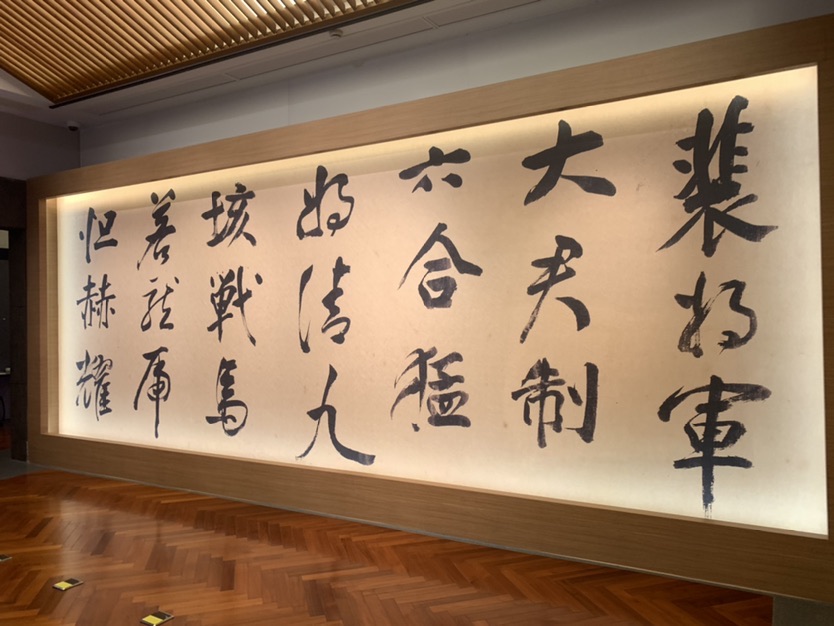 裴将軍
大君制
六合猛
将清九
垓戦馬
若龍虎
烜赫耀